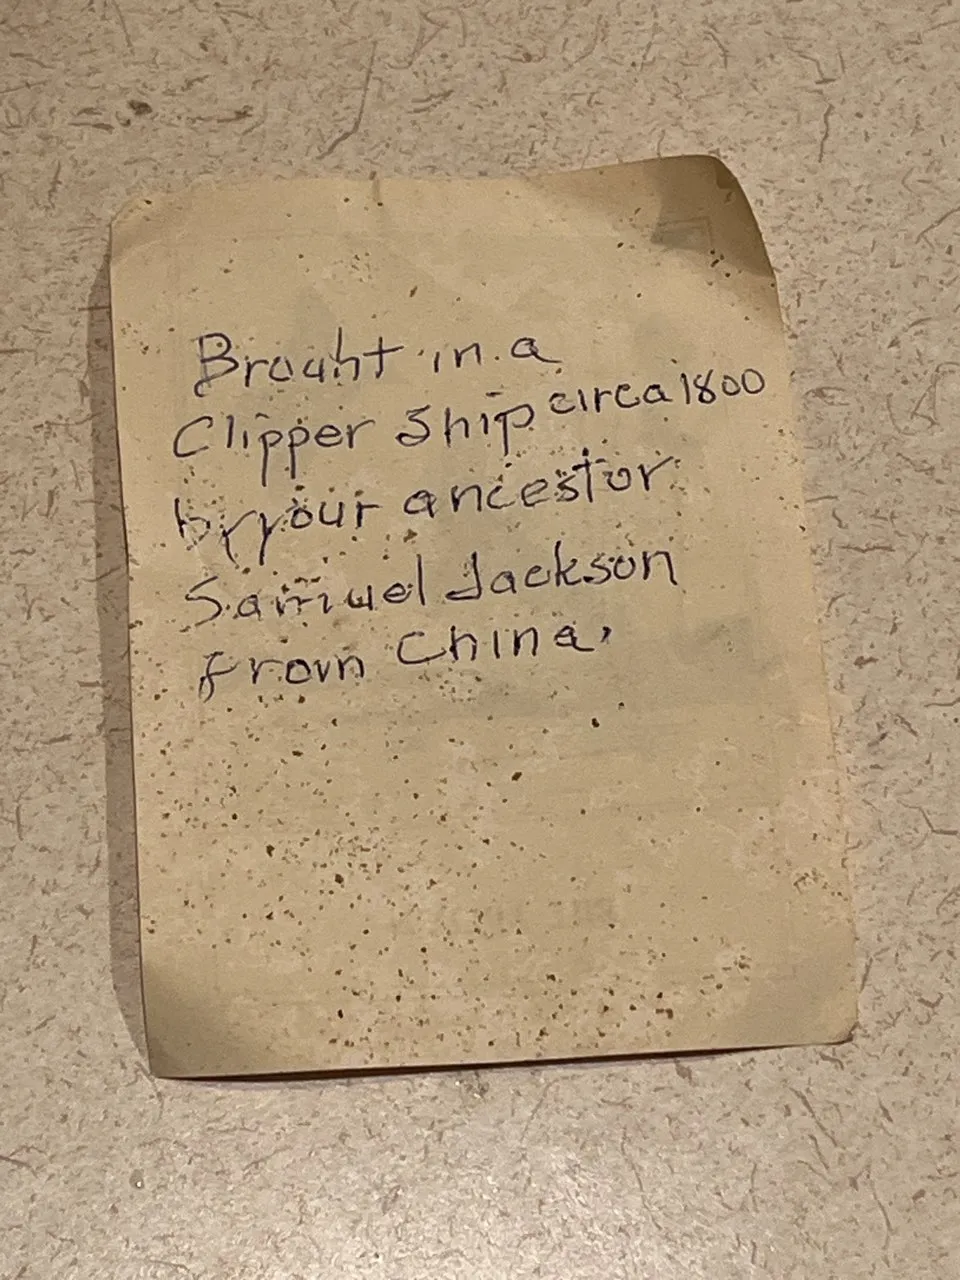 Brouht in a
Clipper Ship circa 1800
by your ancestor
Samuel Jackson
from China.